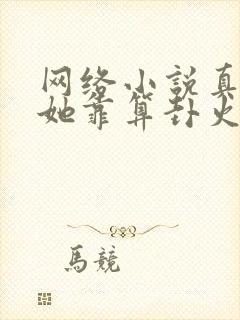 网络小説真
她靠算卦火
馬競